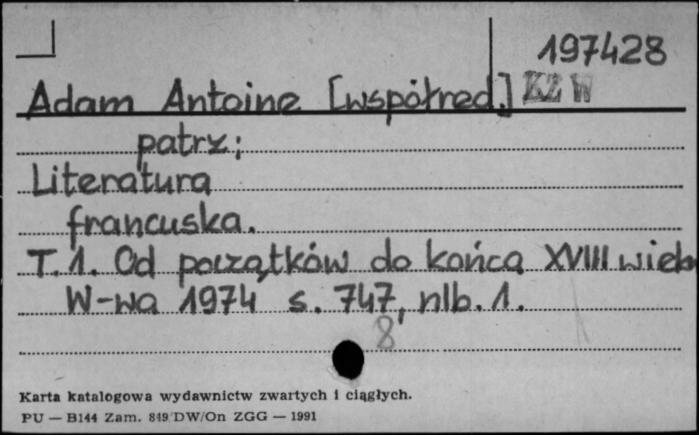 197428
Adam Antoine [współred.] KZ W
patrz:
Literatura
francuska.
T.1. Od początków do końca XVIII wieku
W-wa 1974 s. 747, nlb. 1.
8
Karta katalogowa wydawnictw zwartych i ciągłych.
PU — B144 Zam. 849/DW/On ZGG — 1991